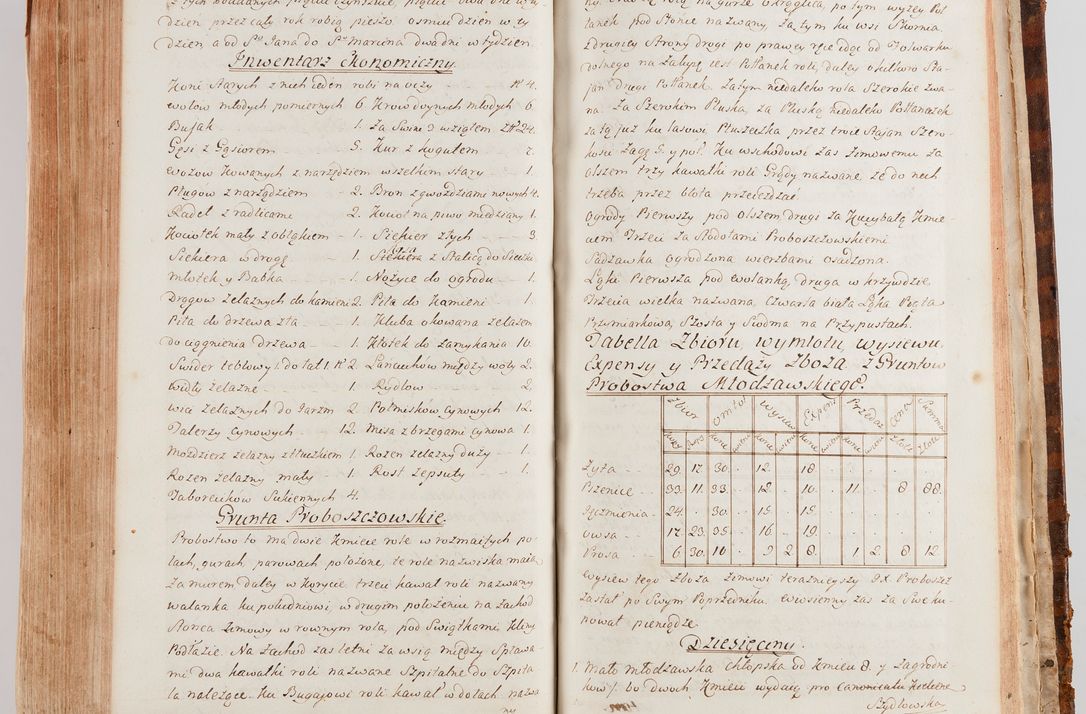 dzień przez cały rok robią pieszo osmu dzień w ty
dzien a od Sgo Jana do Sgo Marcina dwa dni w tydzien.
Inwentarz Ekonomiczny.
Koni Starych z nich ieden robi na oczy Nr 4.
wołow młodych pomiernych 6. Krow doynych młodych 6
Bujak 1. Za Swini 2 wziąłem zł 24.
Gęsi z Gąsiorem 5. Kur z kogutem 7.
wozow kowanych z narzędziem wszelkim stary 1.
Pługow z narządziem 2. Bron z gwoździami nowych 4.
Radeł z radlicami 2. Kocioł na piwo miedziany 1.
Kociołek mały z obłąkiem 1. Siekier złych 3.
Siekiera w drogę 1. Siekiera z Stalicą do Sieczki
młotek y Babka 1. Nożyce do ogrodu 1.
Drągow żelaznych do kamieni 2. Piła do Kamieni 1.
Piła do drzewa zła 1. Kluba okowana żelazem
do ciągnienia drzewa 1. Kłotek do zamykania 10.
Swider leblowy 1. do łat 1. Nr 2. Łańcuchow między woły 2.
widły żelazne 1. Rydlow 2.
wic żelaznych do Jarzm 2. Połmiskow cynowych 12.
Talerzy cynowych 12. Mesa z brzegami cynowa 1.
Mozdzierz żelazny z tłuczkiem 1. Rożen żelazny duży 1.
Rożen żelazny mały 1. Rost zepsuty 1.
Taboreckow Sukiennych 4.
Grunta Proboszczowskie.
Probostwo to ma dwie Kmiece role w rozmaitych po-
lach, gurach, parowach położone, te role nazwiska maią
Za murem daley w Korycie trzeci kawał roli nazwany
walanka ku południowi, w drugim położeniu na zachod
Słonca zimowy w rownym rola, pod Swiątkami, Kliny
Podłazie. Na Zachod zas letni za wsią między Spława-
mi dwa kawałki roli nazwane Szpitalne do Szpita-
la należące. Ku Bugajowi roli kawał w dołach nazwa
ny
łanek pod Słonce nazwany, za tym ku wsi Skornia.
z drugiey Strony drogi po prawey ręce idąc od Folwarku
dolnego na Zalupę iest Połłanek roli, daley o kilkoro Sta-
jan drugi Połłanek. Za tym niedaleko rola Szerokie zwa-
na. Za Szerokiem Pluska, za Pluską niedaleko Połłanaczek
za tą już ku lasowi Ptuszeczka przez troie Stajan Szero-
kości Zagę 5. y poł. Ku wschodowi zas zimowemu za
olszem trzy kawałki roli Grądy nazwane że do nich
trzeba przez błota przeieżdżać
Ogrody Pierwszy pod olszem, drugi za Kucybałą Kmie-
ciem Trzeci za Stodołami Proboszczowskiemi
Sadzawka ogrodzona wierzbami osadzona.
Łąka Pierwsza pod Wolanką, druga w krzywdzie,
Trzecia wielka nazwana, czwarta biała Łąka Piąta
Brzumiarkowa, Szosta y Siodma na Przypustach.
Tabella Zbioru, wymłotu, wysiewu,
Expensy y Przedaży Zboża z Gruntow
Probostwa Młodzawskiego.
Zbior omłot wysiew Expens Przedaż Cena Summa
Żyta 29. 17. 30. 12. 18.
Pszenice 33. 11. 33. 12. 10. 11. 8 88.
Jęczmienia 24. 30. 15. 15.
owsa 17. 23. 35. 16. 19.
Prosa 6 30. 10. 2 8. 1 2 8 12
wysiew tego Zboża zimowi teraznieyszy JX. Proboszcz
zastał po Swym Poprzedniku. wiosienny zas za Swe ku-
pował pieniądze.
Dziesięciny.
1. Mała młodzawska chłopska od kmieci 8. y zagrodni-
kow /: bo dwoch Kmieci wydaią pro Canonicatu Kielcen
Szydłowska